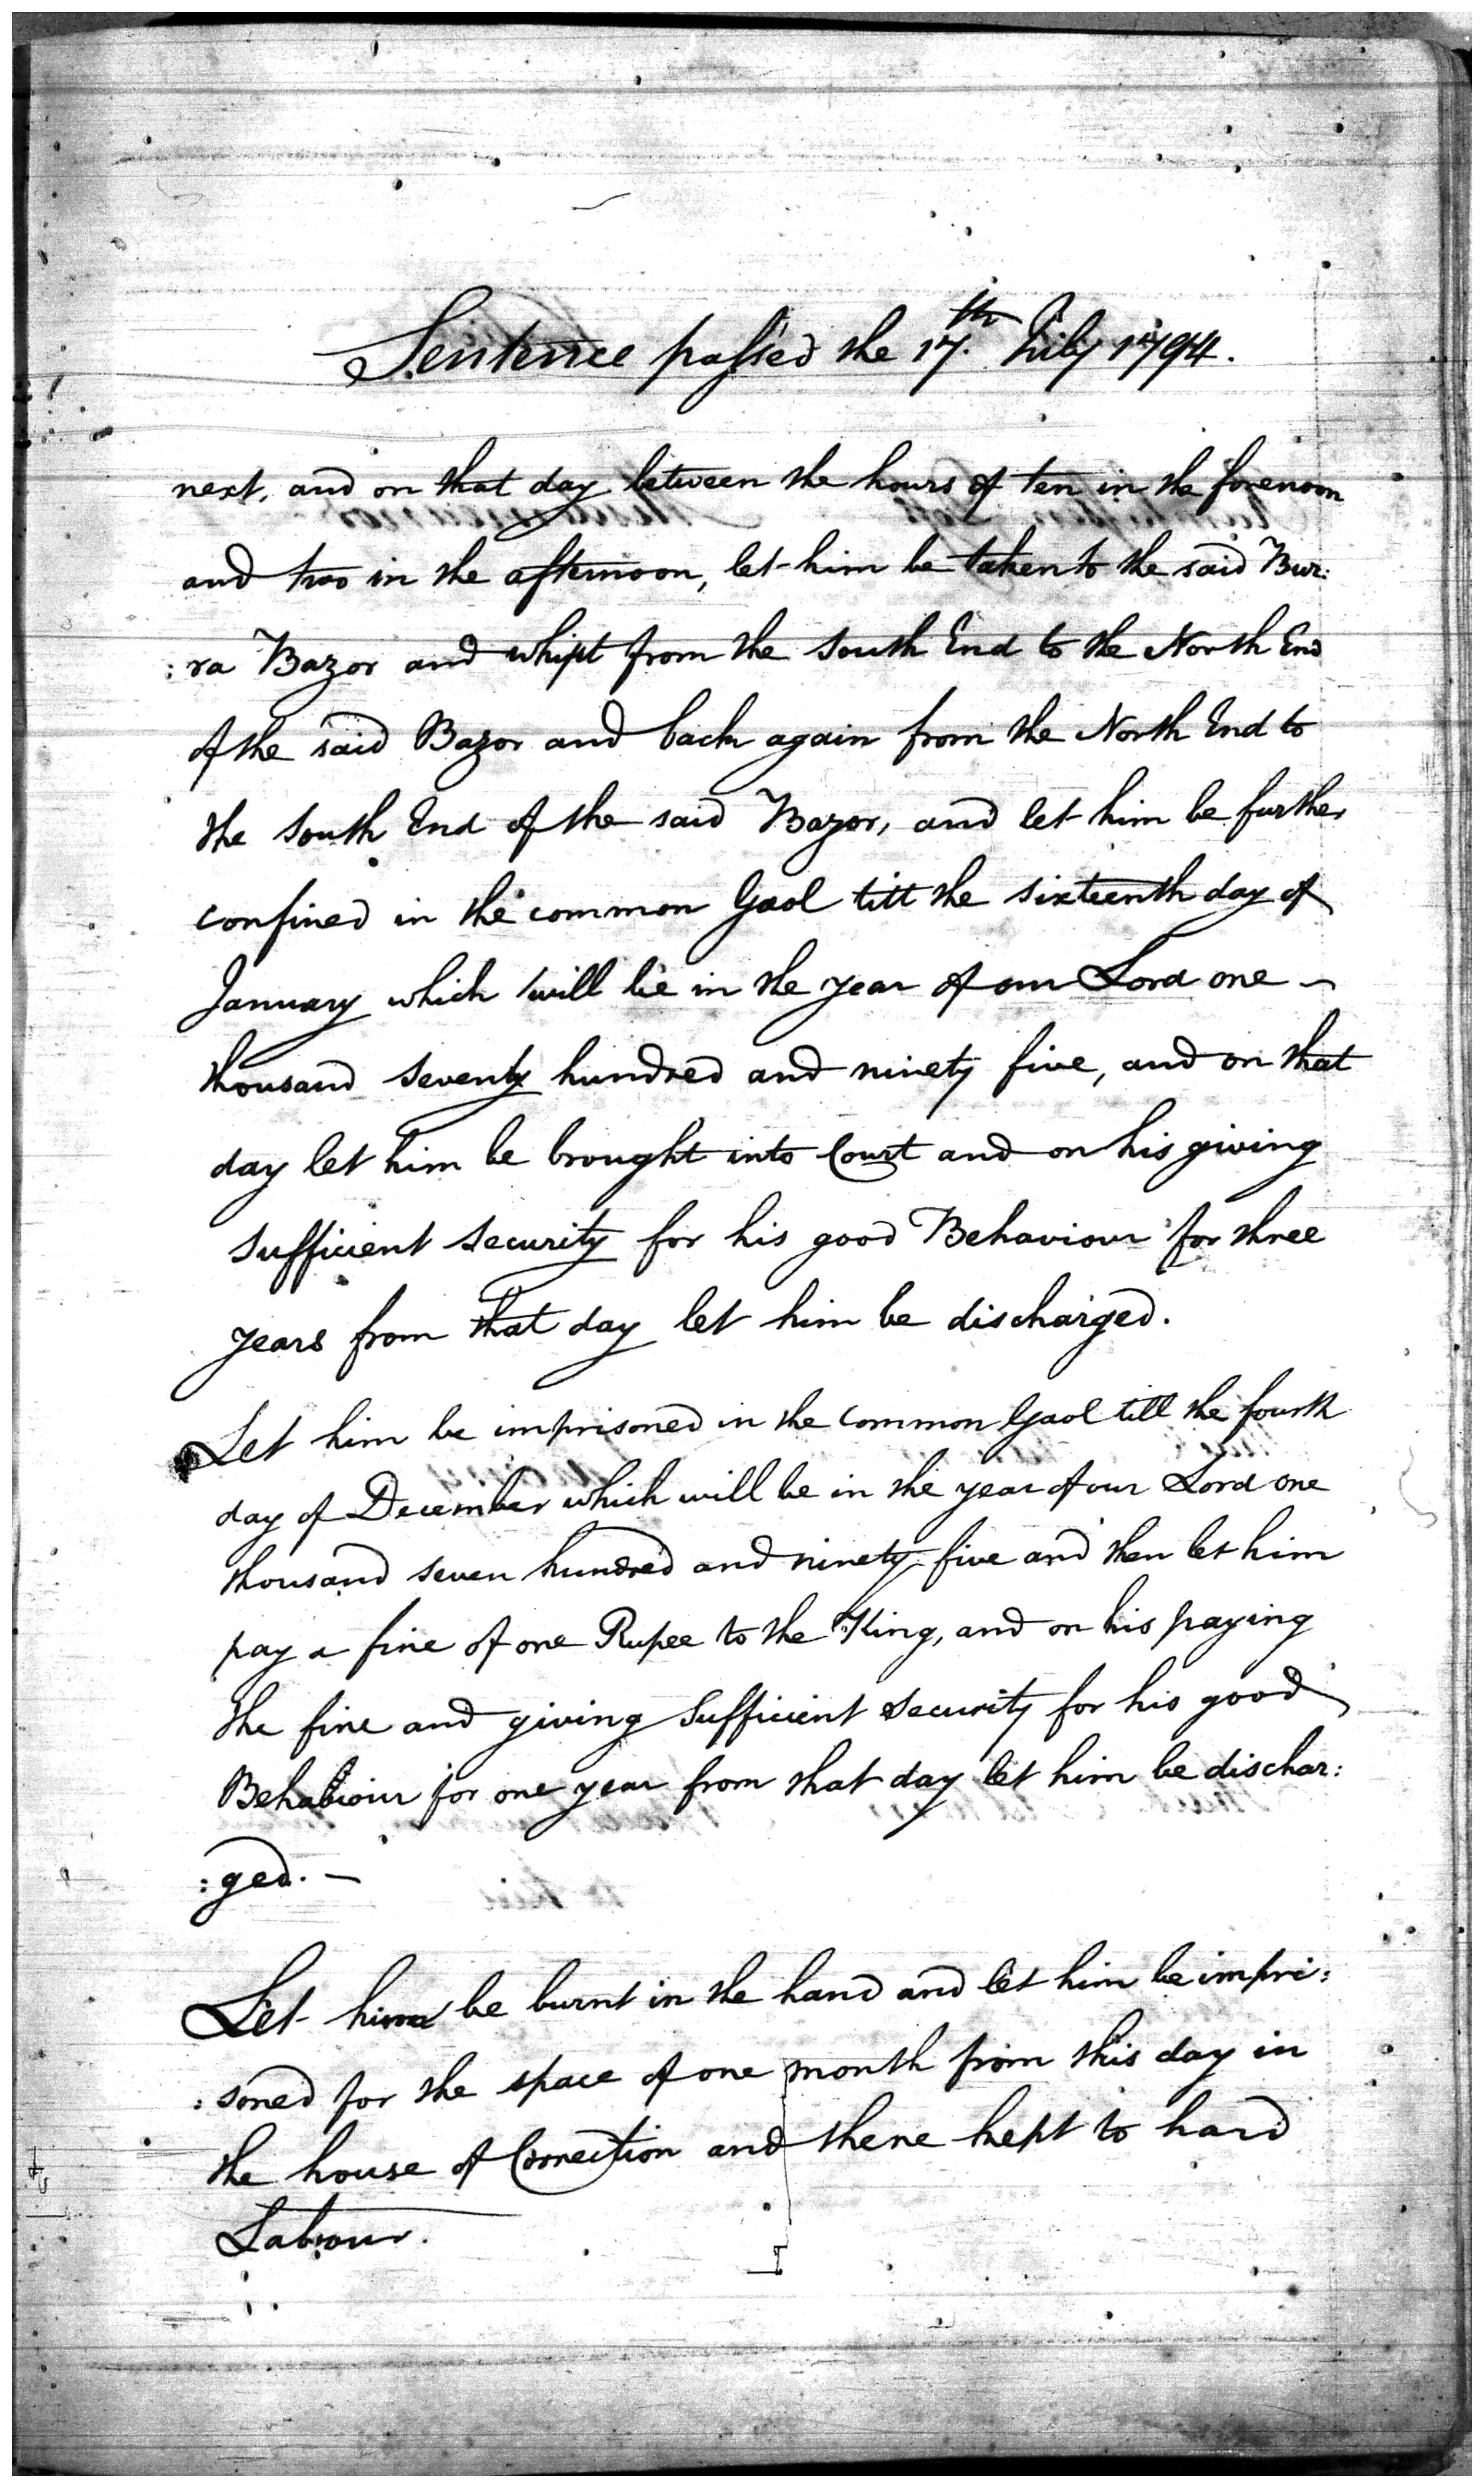 Sentence passed the 17th July 1794.
next, and on that day between the hours of ten in the forenoon
and two in the afternoon, let him be taken to the said Bur:
:ra Bazor and whipt from the South End to the North End
of the said Bazor and back again from the North End to
the South End of the said Bazor, and let him be further
confined in the common Gaol till the sixteenth day of
January which will be in the year of our Lord one –
thousand seventy hundred and ninety five, and on that
day let him be brought into Court and on his giving
sufficient security for his good Behaviour for three
years from that day let him be discharged.
Let him be imprisoned in the Common Gaol till the fourth
day of December which will be in the year of our Lord one
thousand seven hundred and ninety five and then let him
pay a fine of one Rupee to the King, and on his paying
the fine and giving Sufficient Security for his good
Behaviour for one year from that day let him be dischar:
:ged. –
Let him be burnt in the hand and let him be impri:
:soned for the space of one month from this day in
the house of Correction and there kept to hard
Labour.